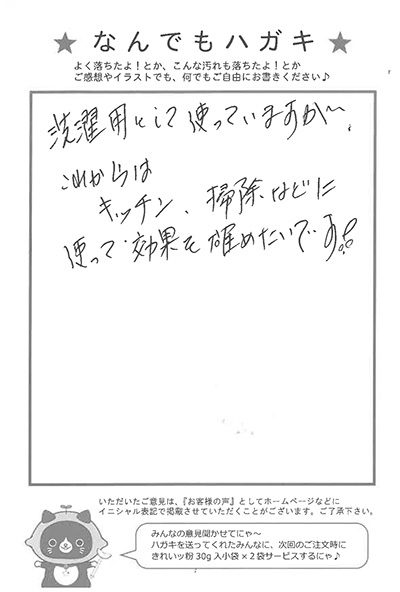 ★ なんでもハガキ ★
よく落ちたよ！とか、こんな汚れも落ちたよ！とか
ご感想やイラストでも、何でもご自由にお書きください♪
洗濯用として使っていますが〜、
これからは
キッチン、掃除などに
使って効果を確めたいです!!
いただいたご意見は、『お客様の声』としてホームページなどに
イニシャル表記で掲載させていただくことがございます。ご了承下さい。
みんなの意見聞かせてにゃ〜
ハガキを送ってくれたみんなに、次回のご注文時に
きれいッ粉30g入小袋×2袋サービスするにゃ♪